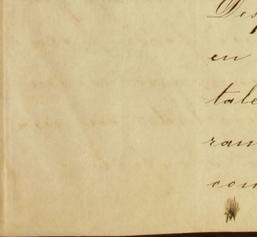 Des
en
tale
ram
com